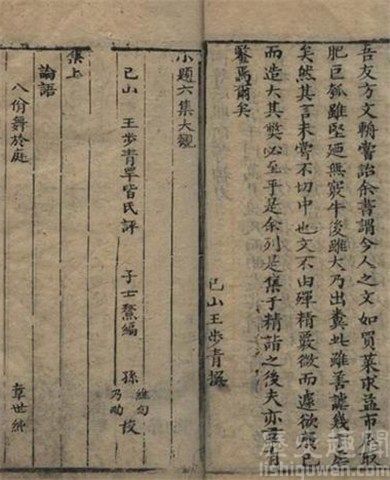 吾友方文輈嘗詒余書謂今人之文如買菜求益市瓜取
肥巨瓠雖堅廼無竅牛後雖大乃出糞此雖善謔幾
矣然其言未嘗不切中也文不由殫精嚴微而遽欲
而造大其獘必至乎是余列是集于精詣之後夫亦
鑒焉爾矣
已山王步青撰
小題六集大觀
已山 王步青罕皆氏評 子士鰲編 孫 維甸 乃昀 校
集上
論語
八佾舞於庭
章世純
歷史趣聞
lishiquwen.com